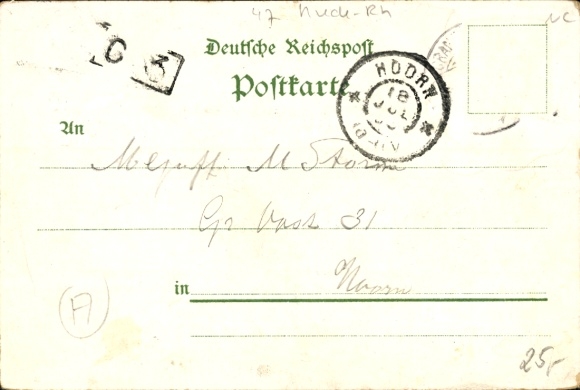 47
Deutsche Reichspost
Postkarte
HOORN
18
JUL
An
Mejuff M Storm
Gr Oost 31
in Hoorn
25,-